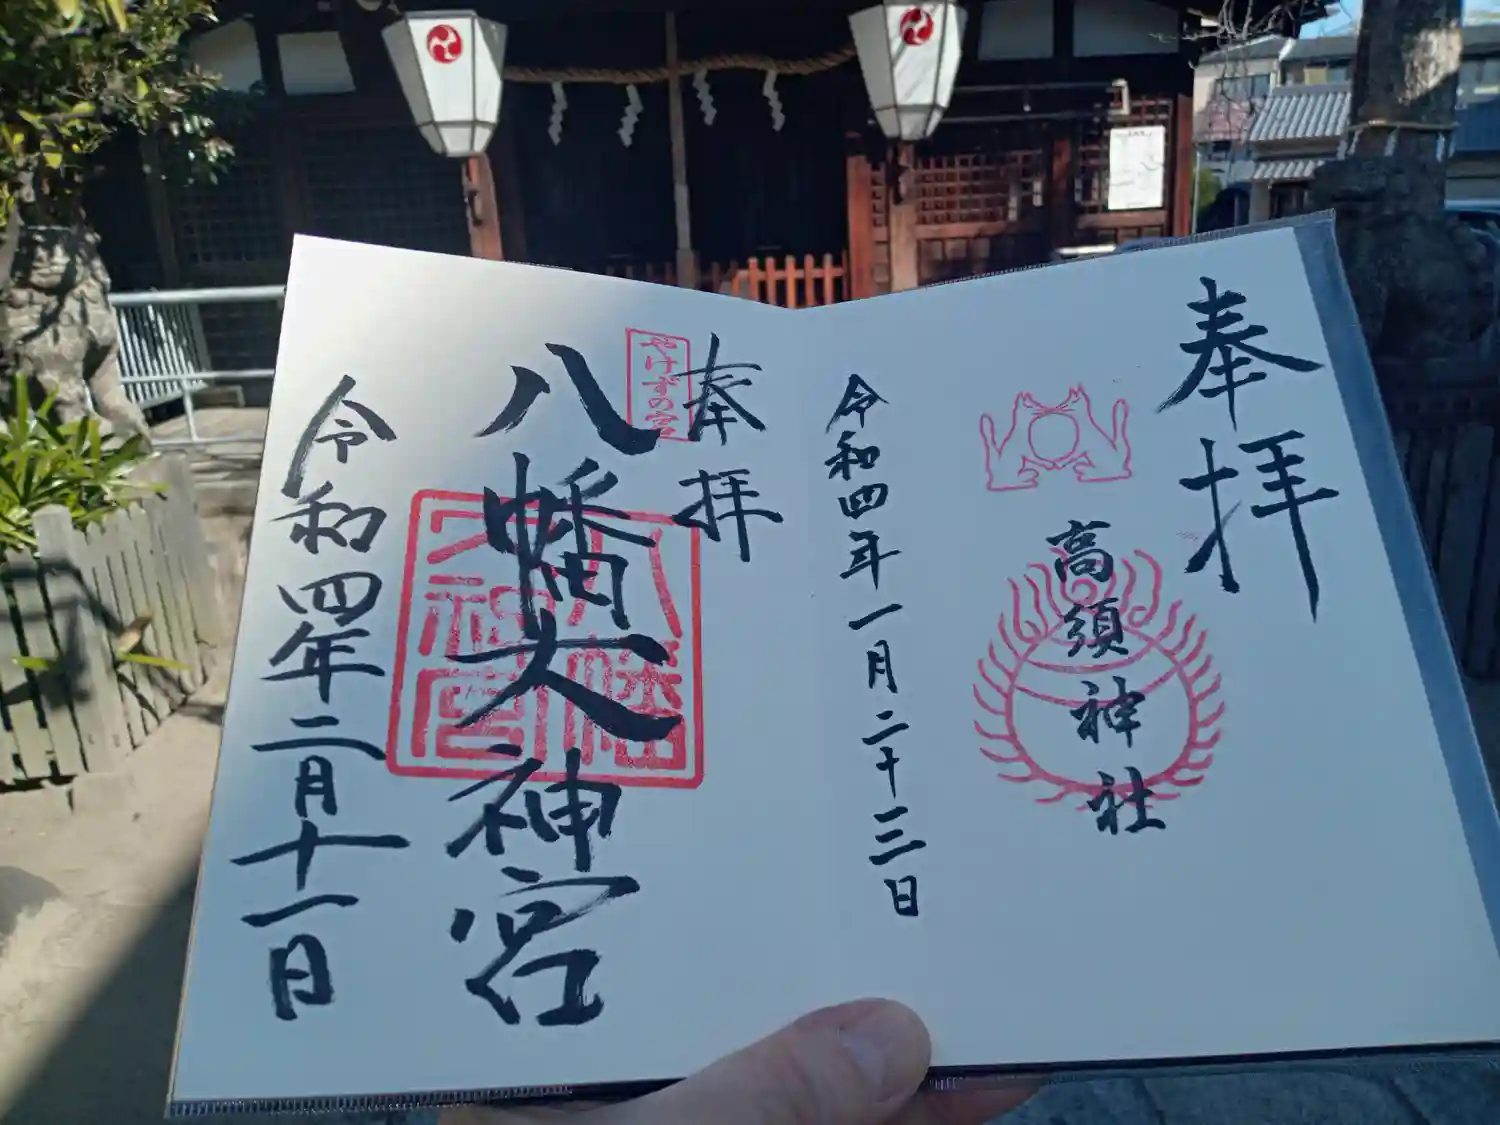 奉拝
高須神社
令和四年一月二十三日
奉拝
やけずの宮
八幡大神宮
八幡
大神宮
令和四年二月十一日